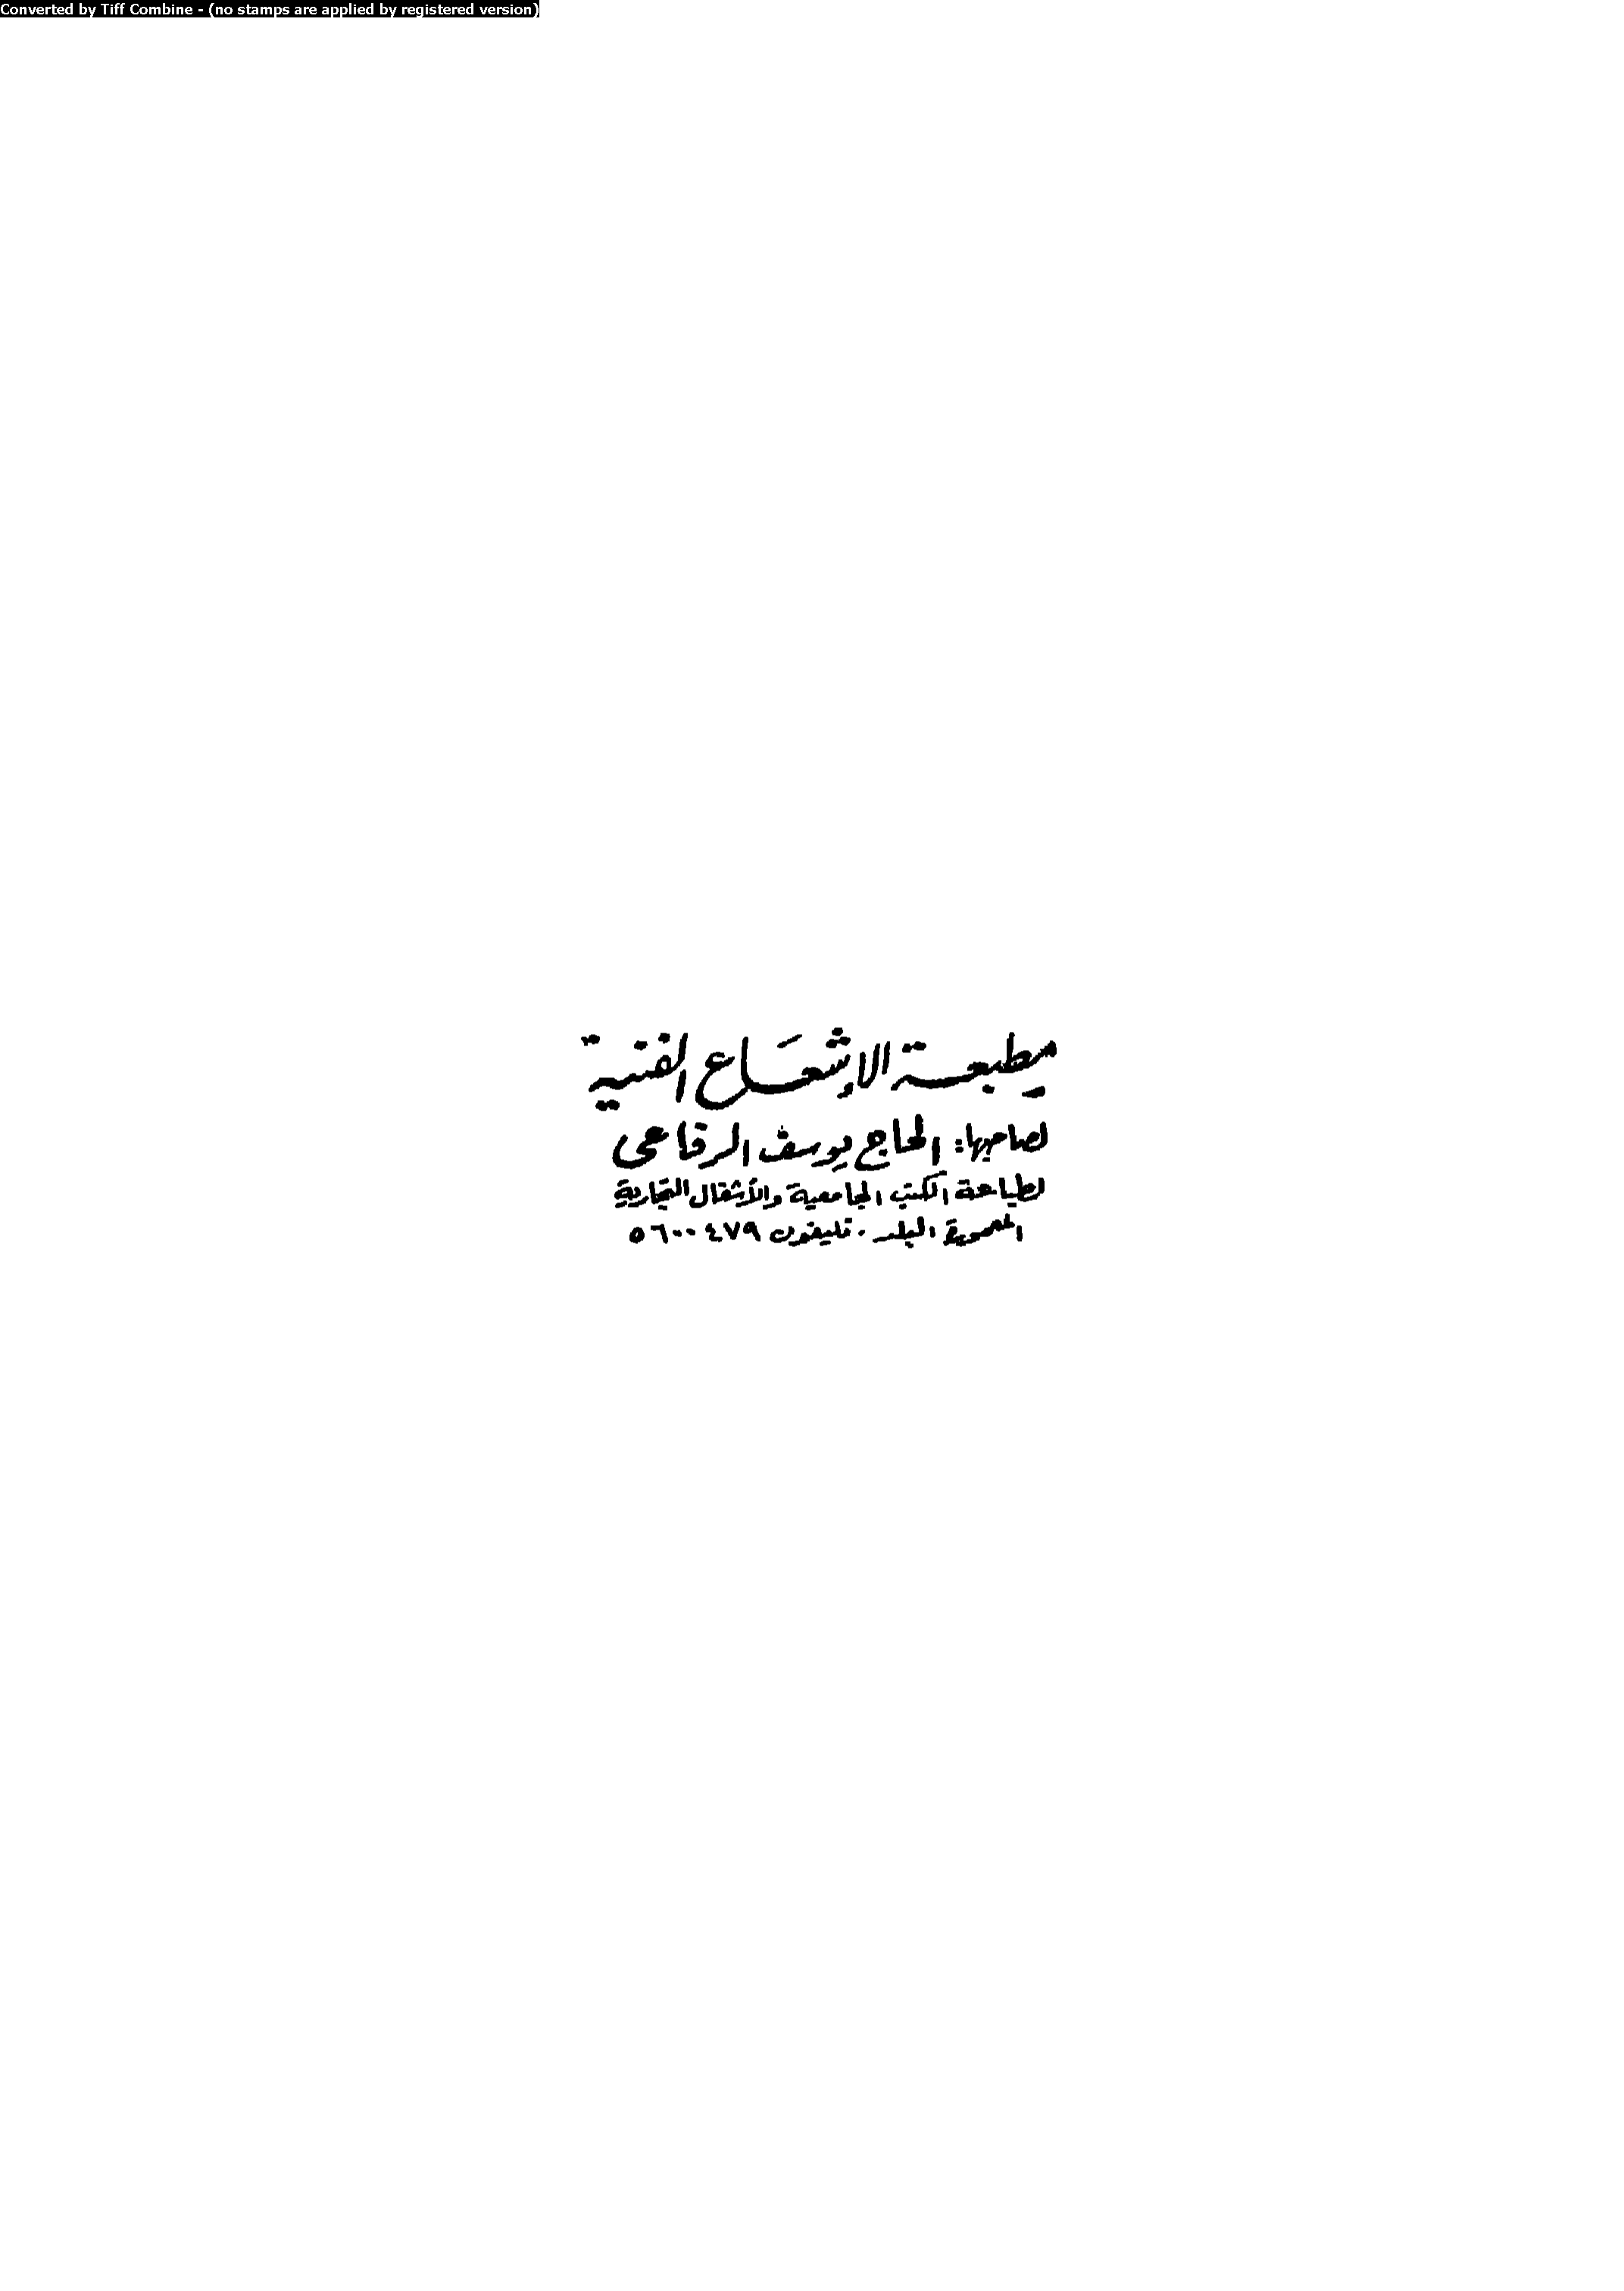 Converted by Tiff Combine - (no stamps are applied by registered version)
مطبعة الإشعاع الفنية
لصاحبها: الحاج يوسف الرفاعى
لطباعة الكتب الجامعية والأشغال التجارية
المعمورة البلد. تليفون ٥٦٠٠٤٧٩